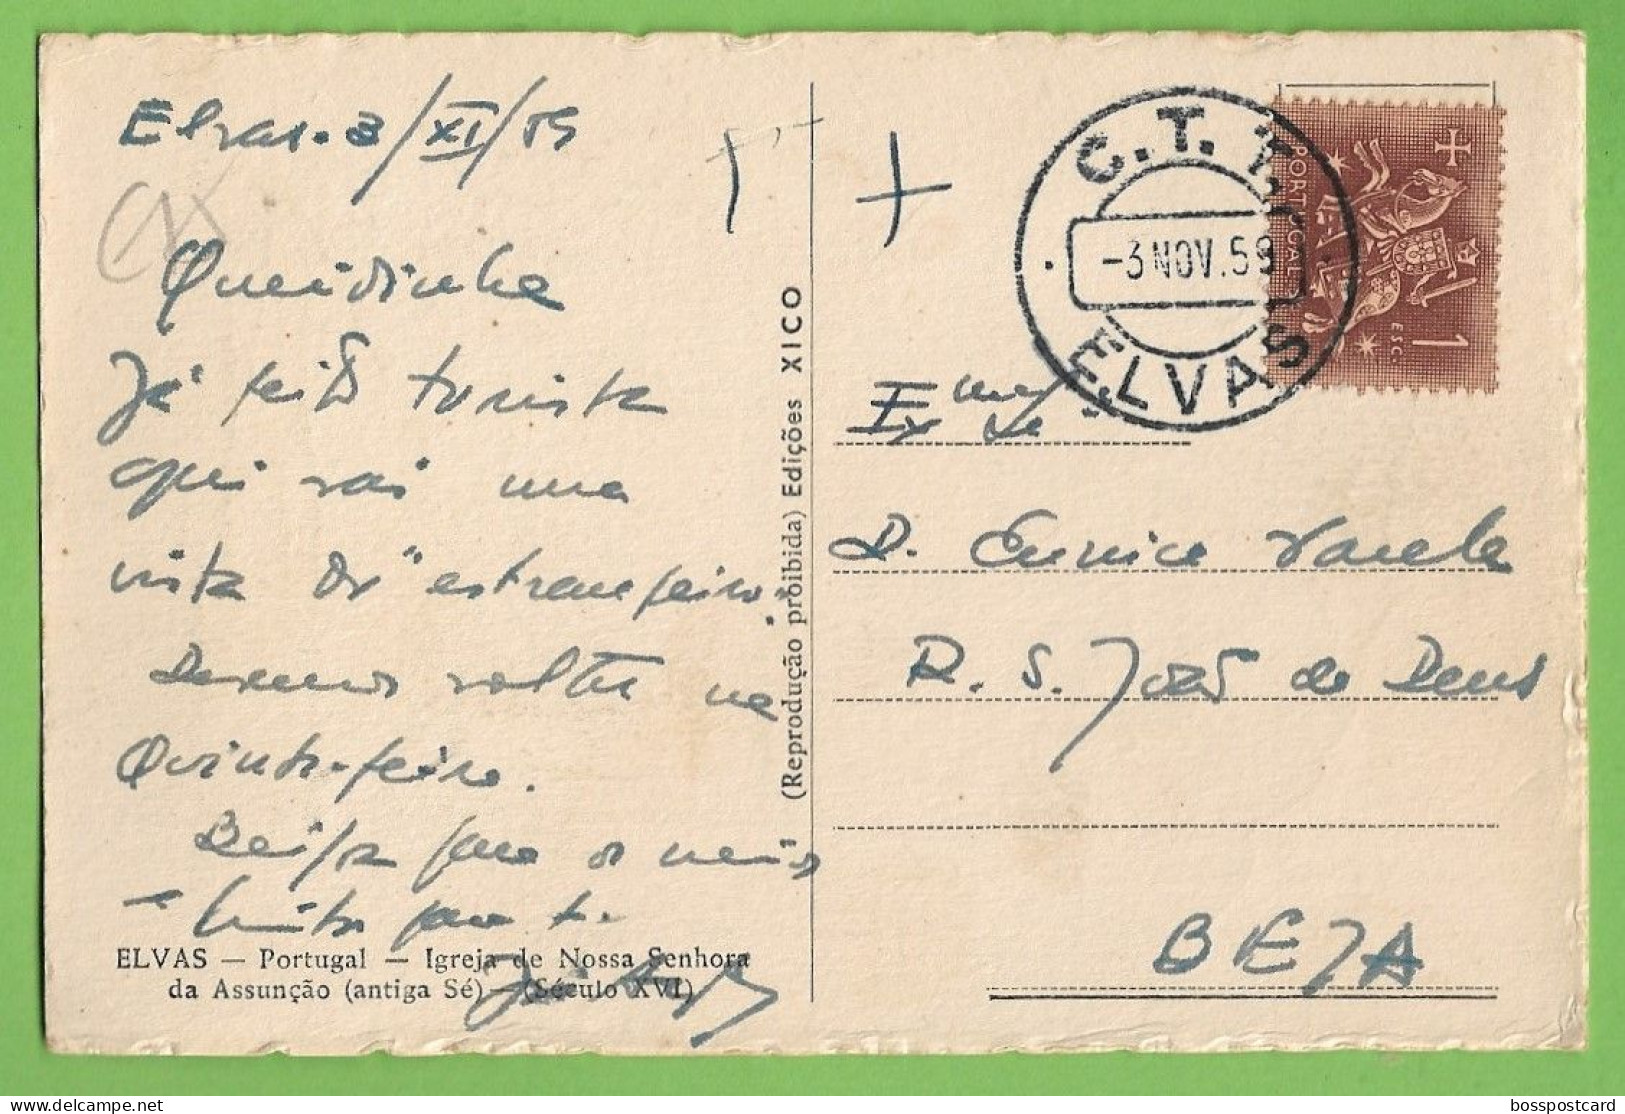 Elvas. 3/XI/59
Queridinha
Já feito turista
aqui vai uma
vista do "estrangeiro".
Devemos voltar na
Quinta-feira.
Beijos para os meus
e muitos para ti.
ELVAS — Portugal — Igreja de Nossa Senhora
da Assunção (antiga Sé) — (Século XVI)
(Reprodução proibida) Edições XICO
C.T.T.
-3 NOV. 59
ELVAS
PORTUGAL
1 ESC.
Exma
D. Eunice Varela
R. S. João de Deus
BEJA
bosspostcard